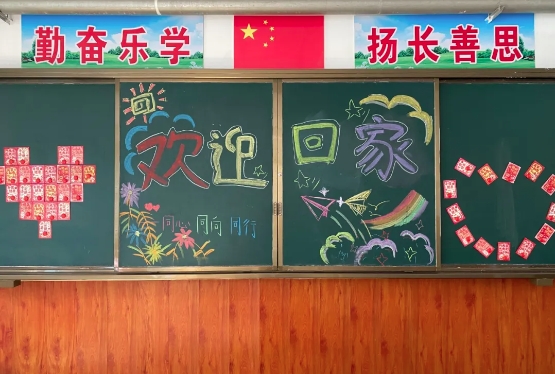 勤奋乐学
扬长善思
欢迎回家
同心 同向 同行